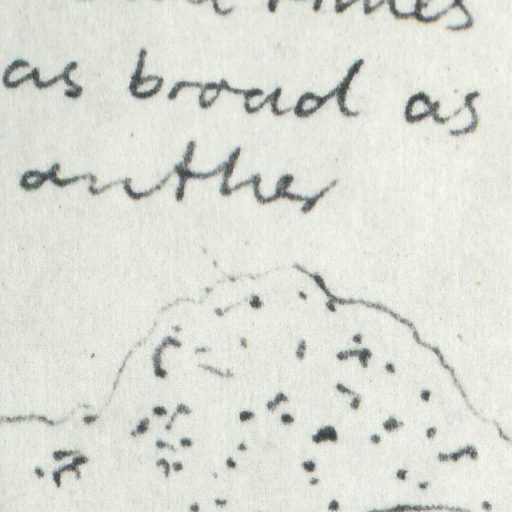 times
as broad as
anther